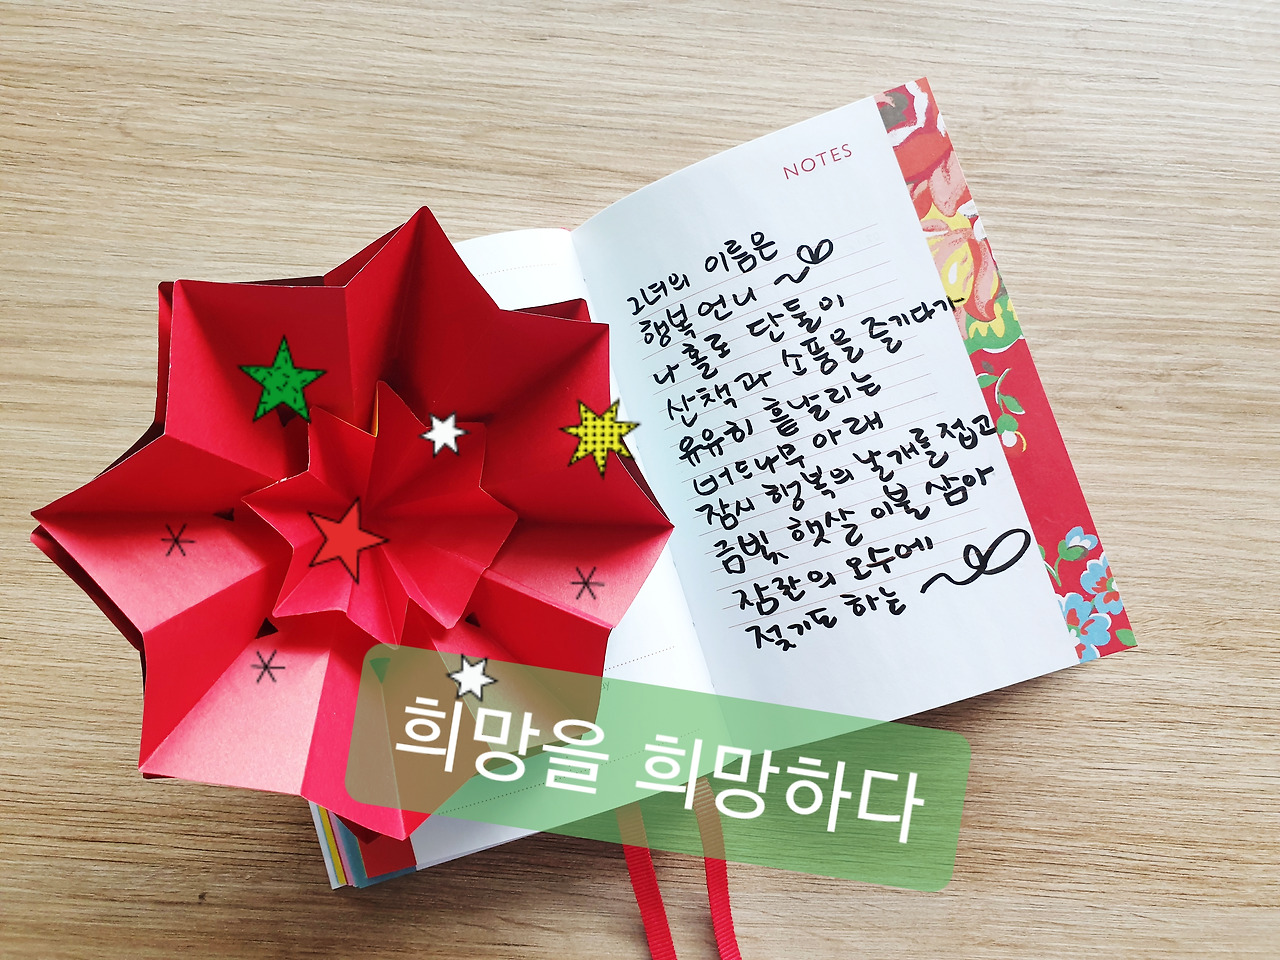 NOTES
그녀의 이름은
행복 언니
나 홀로 단둘이
산책과 소풍을 즐기다가
유유히 흩날리는
버드나무 아래
잠시 행복의 날개를 접고
금빛 햇살 이불 삼아
잠깐의 오수에
젖기도 하는
희망을 희망하다